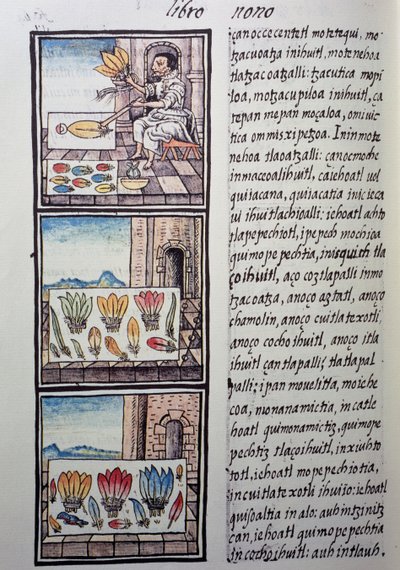 libro nono
çan occecentetl motetequi, mo-
tzacuoatza inihuitl, motenehoa
tlatzacoatzalli: tzacutica mopi
loa, motzacupiloa inihuitl, ça
tepan mepan moçaloa, omi vic
tica ommixipetzoa. Ininmote
nehoa tlaoatzalli: çanoc moche
inmacoalihuitl, caiehoatl vel
quiiacana, quiiacatia inicieca
ui ihuitlachioalli: iehoatl achto
tlapepechiotl, ipepech mochioa
quimopepechtia, inisquich tla
çoihuitl, aço coztlapalli inmo
tzacoatza, anoço aztatl, anoço
chamolin, anoço cuitlatexotli
anoço cochoihuitl, anoço itla
ihuitl çan tlapalli; tlatlapal
palli; ipan movelitta, moiehe
coa, monanamictia, in catle
hoatl quimonamictiz, quimope
pechtiz tlaçoihuitl, inxiuhto
totl, iehoatl mopepechiotia,
in cuitlatexotli ihuiio: iehoatl
quiçoaltia in alo: auh intzinitz
can, iehoatl quimopepechtia
in cocho ihuitl: auh intlauh.